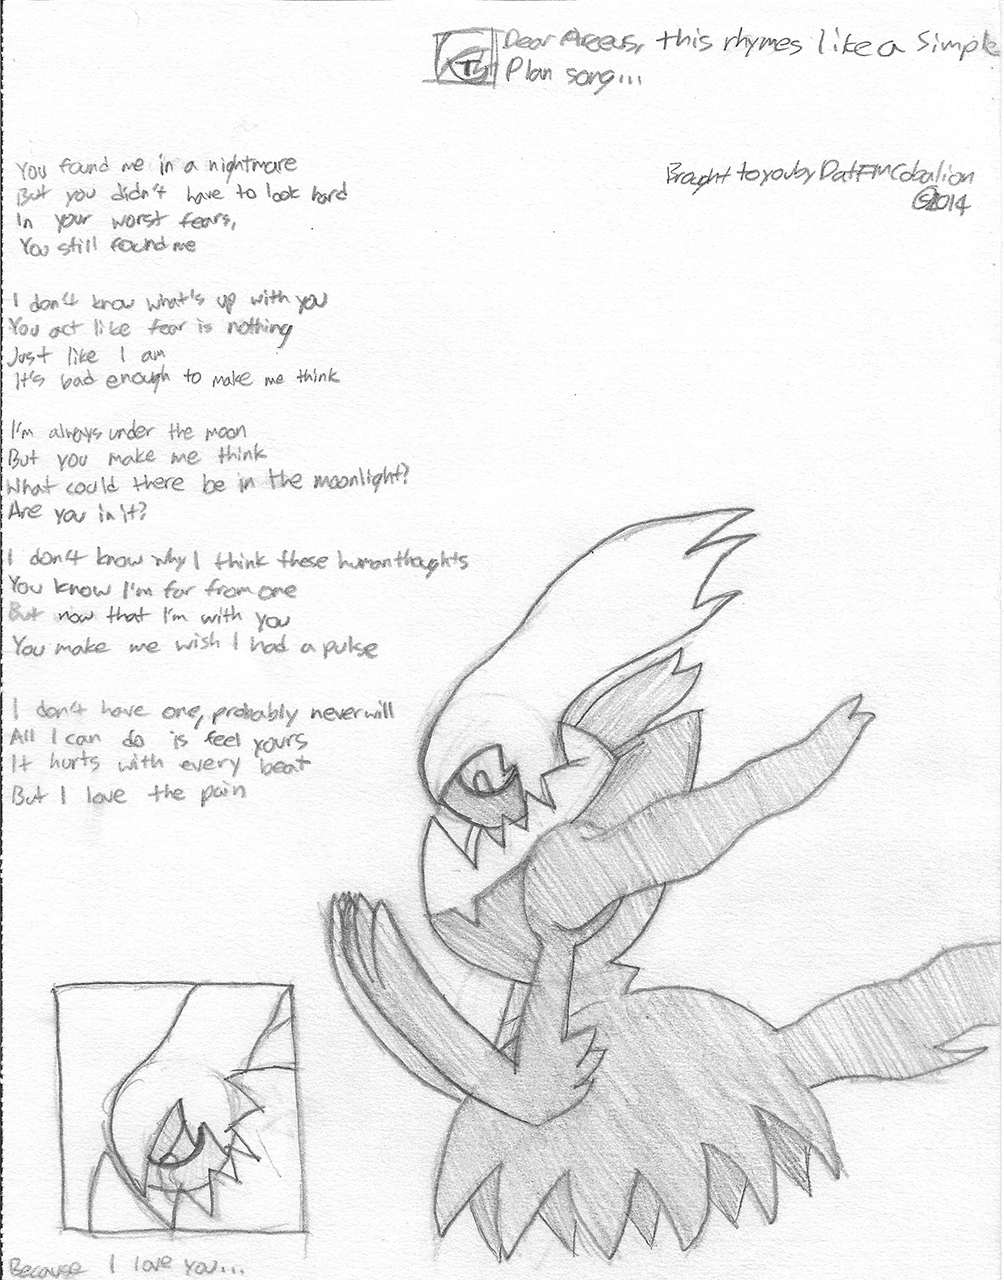 Dear Arceus, this rhymes like a Simple
Plan song...
Brought to you by DatFMCobalion
©2014
You found me in a nightmare
But you didn't have to look hard
In your worst fears,
You still found me
I don't know what's up with you
You act like fear is nothing
Just like I am
It's bad enough to make me think
I'm always under the moon
But you make me think
What could there be in the moonlight?
Are you in it?
I don't know why I think these human thoughts
You know I'm far from one
But now that I'm with you
You make me wish I had a pulse
I don't have one, probably never will
All I can do is feel yours
It hurts with every beat
But I love the pain
Because I love you...